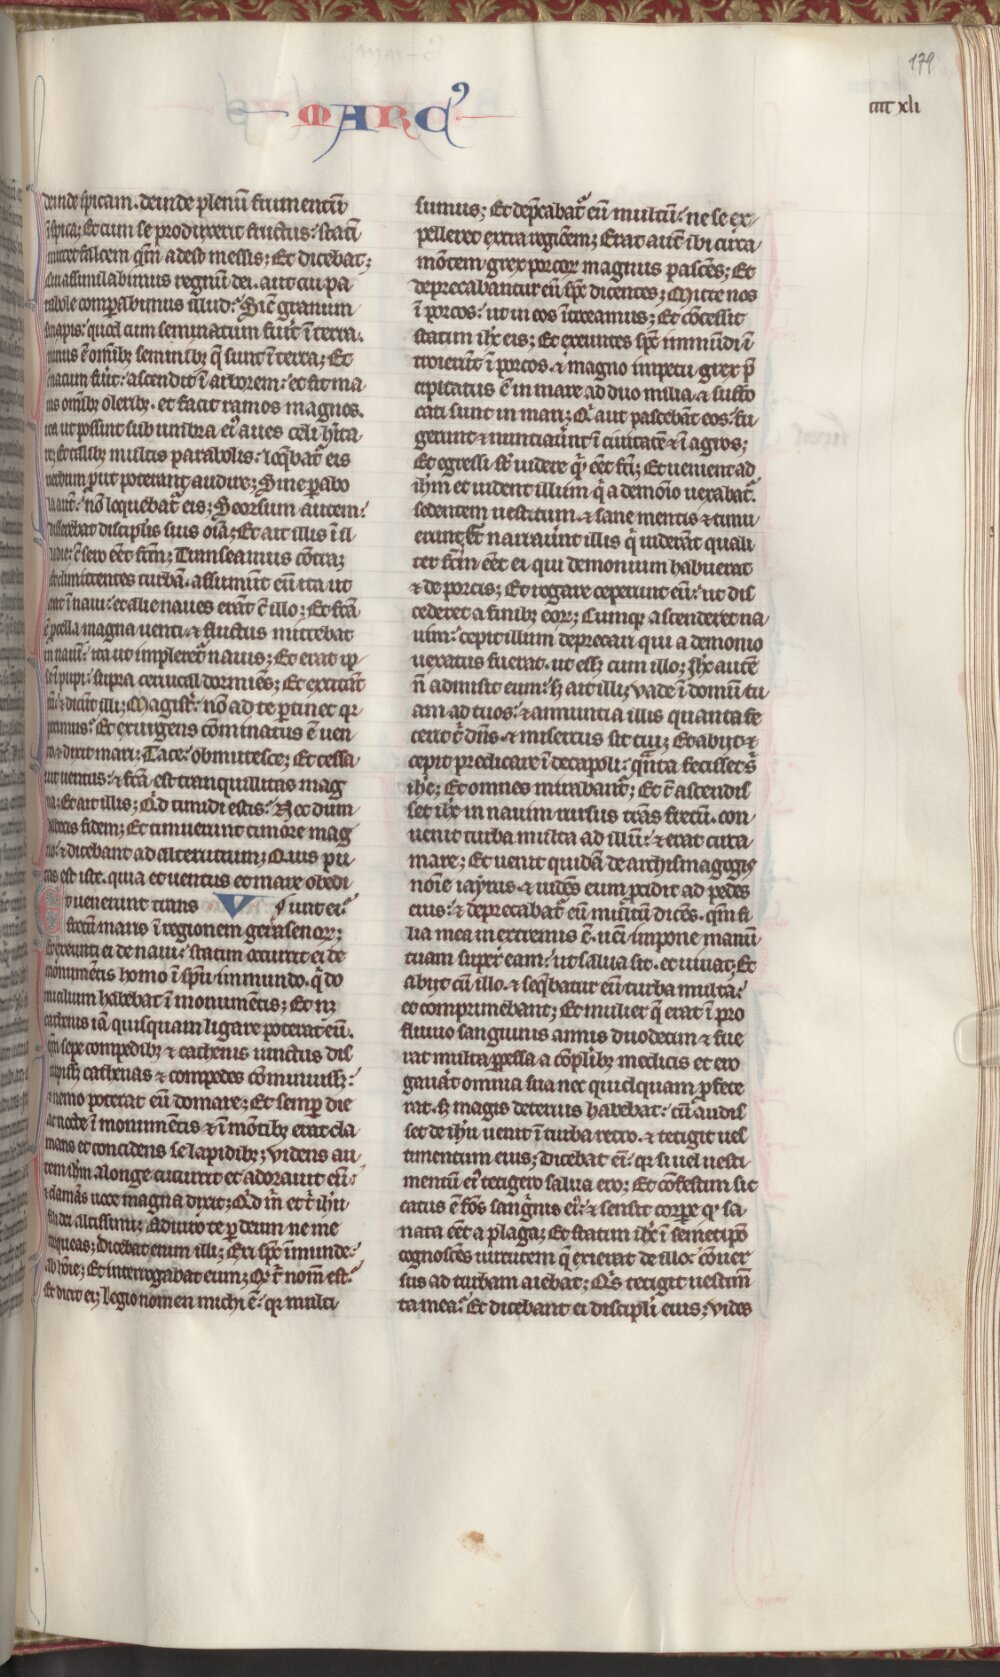 179
MARC9
cccc xli
deinde spicam. deinde plenū frumentū
ī spica; Et cum se produxerit fructus: statī
mittet falcem qm̄ adest messis; Et dicebat;
Cui assimilabimus regnū dei. aut cui pa
rabole comparabimus illud: Sic̄ granum
sinapis: quod cum seminatum fuit̄ ī terra.
minus ē omībꝫ seminibꝫ q̄ sunt ī terra; Et
cū natum fūit: ascendit ī arborem: et fit ma
ius omībꝫ oleribꝫ. et facit ramos magnos.
ita ut possint sub umbra eꝰ aues celi hīta
re; Et talibꝫ multis parabolis: loq̄bat̄ eis
uerbum put poterant audire; Sine parabo
la aut̄: nō loquebat̄ eis; Seorsum autem:
disserebat discipulis suis oīa; Et ait illis ī il
la die: cū sero eēt fc̄m; Transeamus cōtra;
Et dimittentes turbā. assumūt eū ita ut
erat ī naui: et alie naues erāt cū illo; Et fc̄a
ē pcella magna uenti. ⁊ fluctus mittebat
in nauī: ita ut impleret̄ nauis; Et erat ip
se ī pupi: supra ceruical dormiēs; Et excitāt
eū: ⁊ dicūt illi; Magist̄: nō ad te ptinet qꝛ
perimus: Et exurgens cōminatus ē uen
to. ⁊ dixit mari; Tace: obmutesce; Et cessa
uit uentus: ⁊ fc̄a est tranquillitas mag
na; Et ait illis; Qīd timidi estis: Necdum
habetis fidem; Et timuerunt timore mag
no: ⁊ dicebant ad alterutrum; Quis pu
tas est iste. quia et uentus et mare obedi
Et uenerunt trans V unt ei:
fretum maris ī regionem gerasenorꝝ;
Et exeunti ei de naui: statim occurrit ei de
monumētis homo ī spū immundo. q̄ do
micilium habebat ī monumētis; Et nꝫ
cathenis iā quisquam ligare poterat eū.
qm̄ sepe compedibꝫ ⁊ cathenis uinctus dis
rupissꝫ cathenas ⁊ compedes cōminuissꝫ:
⁊ nemo poterat eū domare; Et semp die
ac nocte ī monumētis ⁊ ī mōtibꝫ erat cla
mans et concidens se lapidibꝫ; Videns au
tem ihm̄ a longe cucurrit et adorauit eū:
⁊ clamās uoce magna dixit; Qīd m̄ et t̄ ihū
fili dei altissimi; Adiuro te p deum ne me
torqueas; Dicebat enim illi; Exi spc̄ īmunde:
ab hoīe; Et interrogabat eum; Qd̄ t̄ nom̄ est:
Et dicit ei; Legio nomen michi ē: qꝛ multi
sumus; Et dep̄cabat̄ eū multū: ne se ex
pelleret extra regiōem; Erat aut̄ ibi circa
mōtem grex porcorꝝ magnus pascēs; Et
deprecabantur eū spc̄ dicentes; Mitte nos
ī porcos: ut in eos ītreamus; Et cōcessit
statim ihc̄ eis; Et exeuntes spc̄ inmūdi ī
troierūt ī porcos. ⁊ magno impetu grex p̄
cipitatus ē in mare ad duo milia. ⁊ suffo
cati sunt in mari; Qī aut̄ pascebāt eos: fu
gerunt ⁊ nuntiauīnt ī ciuitatē ⁊ ī agros;
Et egressi st̄ uidere qd̄ eēt fc̄m; Et ueniunt ad
ihm̄ et uident illum q̄ a demōio uexabat̄.
sedentem uestitum. ⁊ sane mentis ⁊ timu
erunt; Et narrauīnt illis q̄ uiderāt quali
ter fc̄m eēt ei qui demonium habuerat
⁊ de porcis; Et rogare ceperunt eū: ut dis
cederet a finibꝫ eorꝝ; Cumqꝫ ascenderet na
uim: cepit illum deprecari qui a demonio
uexatus fuerat. ut essꝫ cum illo; Ihc̄ autē
n̄ admisit eum: sꝫ ait illi; Vade ī domū tu
am ad tuos: ⁊ annuntia illis quanta fe
cerit t̄ dn̄s. ⁊ misertus sit tui; Et abijt ⁊
cepit predicare ī decapoli: qn̄ta fecisset s̄
ihc̄; Et omnes mirabant̄; Et cū ascendis
set ihc̄ in nauim rursus trās fretū. con
uenit turba multa ad illū: ⁊ erat circa
mare; Et uenit quidā de archisinagogis
noīe iayrus. ⁊ uidēs eum pcidit ad pedes
eius: ⁊ deprecabat̄ eū multū dicēs. qm̄ fi
lia mea in extremis ē. ueni impone manū
tuam super eam: ut salua sit. et uiuat; Et
abijt cū illo. ⁊ seq̄batur eū turba multa:
et comprimebant; Et mulier q̄ erat ī pro
fluuio sanguinis annis duodecim ⁊ fue
rat multa ppessa a cōplibꝫ medicis et ero
gauāt omnia sua nec quicquam pfece
rat. sꝫ magis deterius habebat: cū audis
set de ihū uenit ī turba retro. ⁊ tetigit ues
timentum eius; Dicebat eī: qꝛ si uel uesti
mentū eꝰ tetigero salua ero; Et cōfestim sic
catus ē fōs sanḡnis eꝰ: ⁊ sensit corpe qꝛ sa
nata eēt a plaga; Et statim ihc̄ ī semetipō
cognoscēs uirtutem q̄ exierat de illo: cōuer
sus ad turbam aiebat; Qīs tetigit uestim̄
ta mea: Et dicebant ei discipli eius; Vides